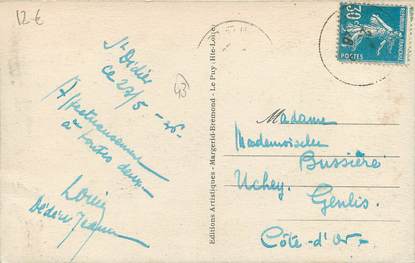 12 €
St Didier
ce 22/5-26
Affectueusement
à toutes deux
Louis
Dédée Jeanne
43
Editions Artistiques - Margerid-Bremond - Le Puy (Hte-Loire)
30c
POSTES
Madame
Mademoiselle
Bussière
Uchey. Genlis
Côte-d'Or